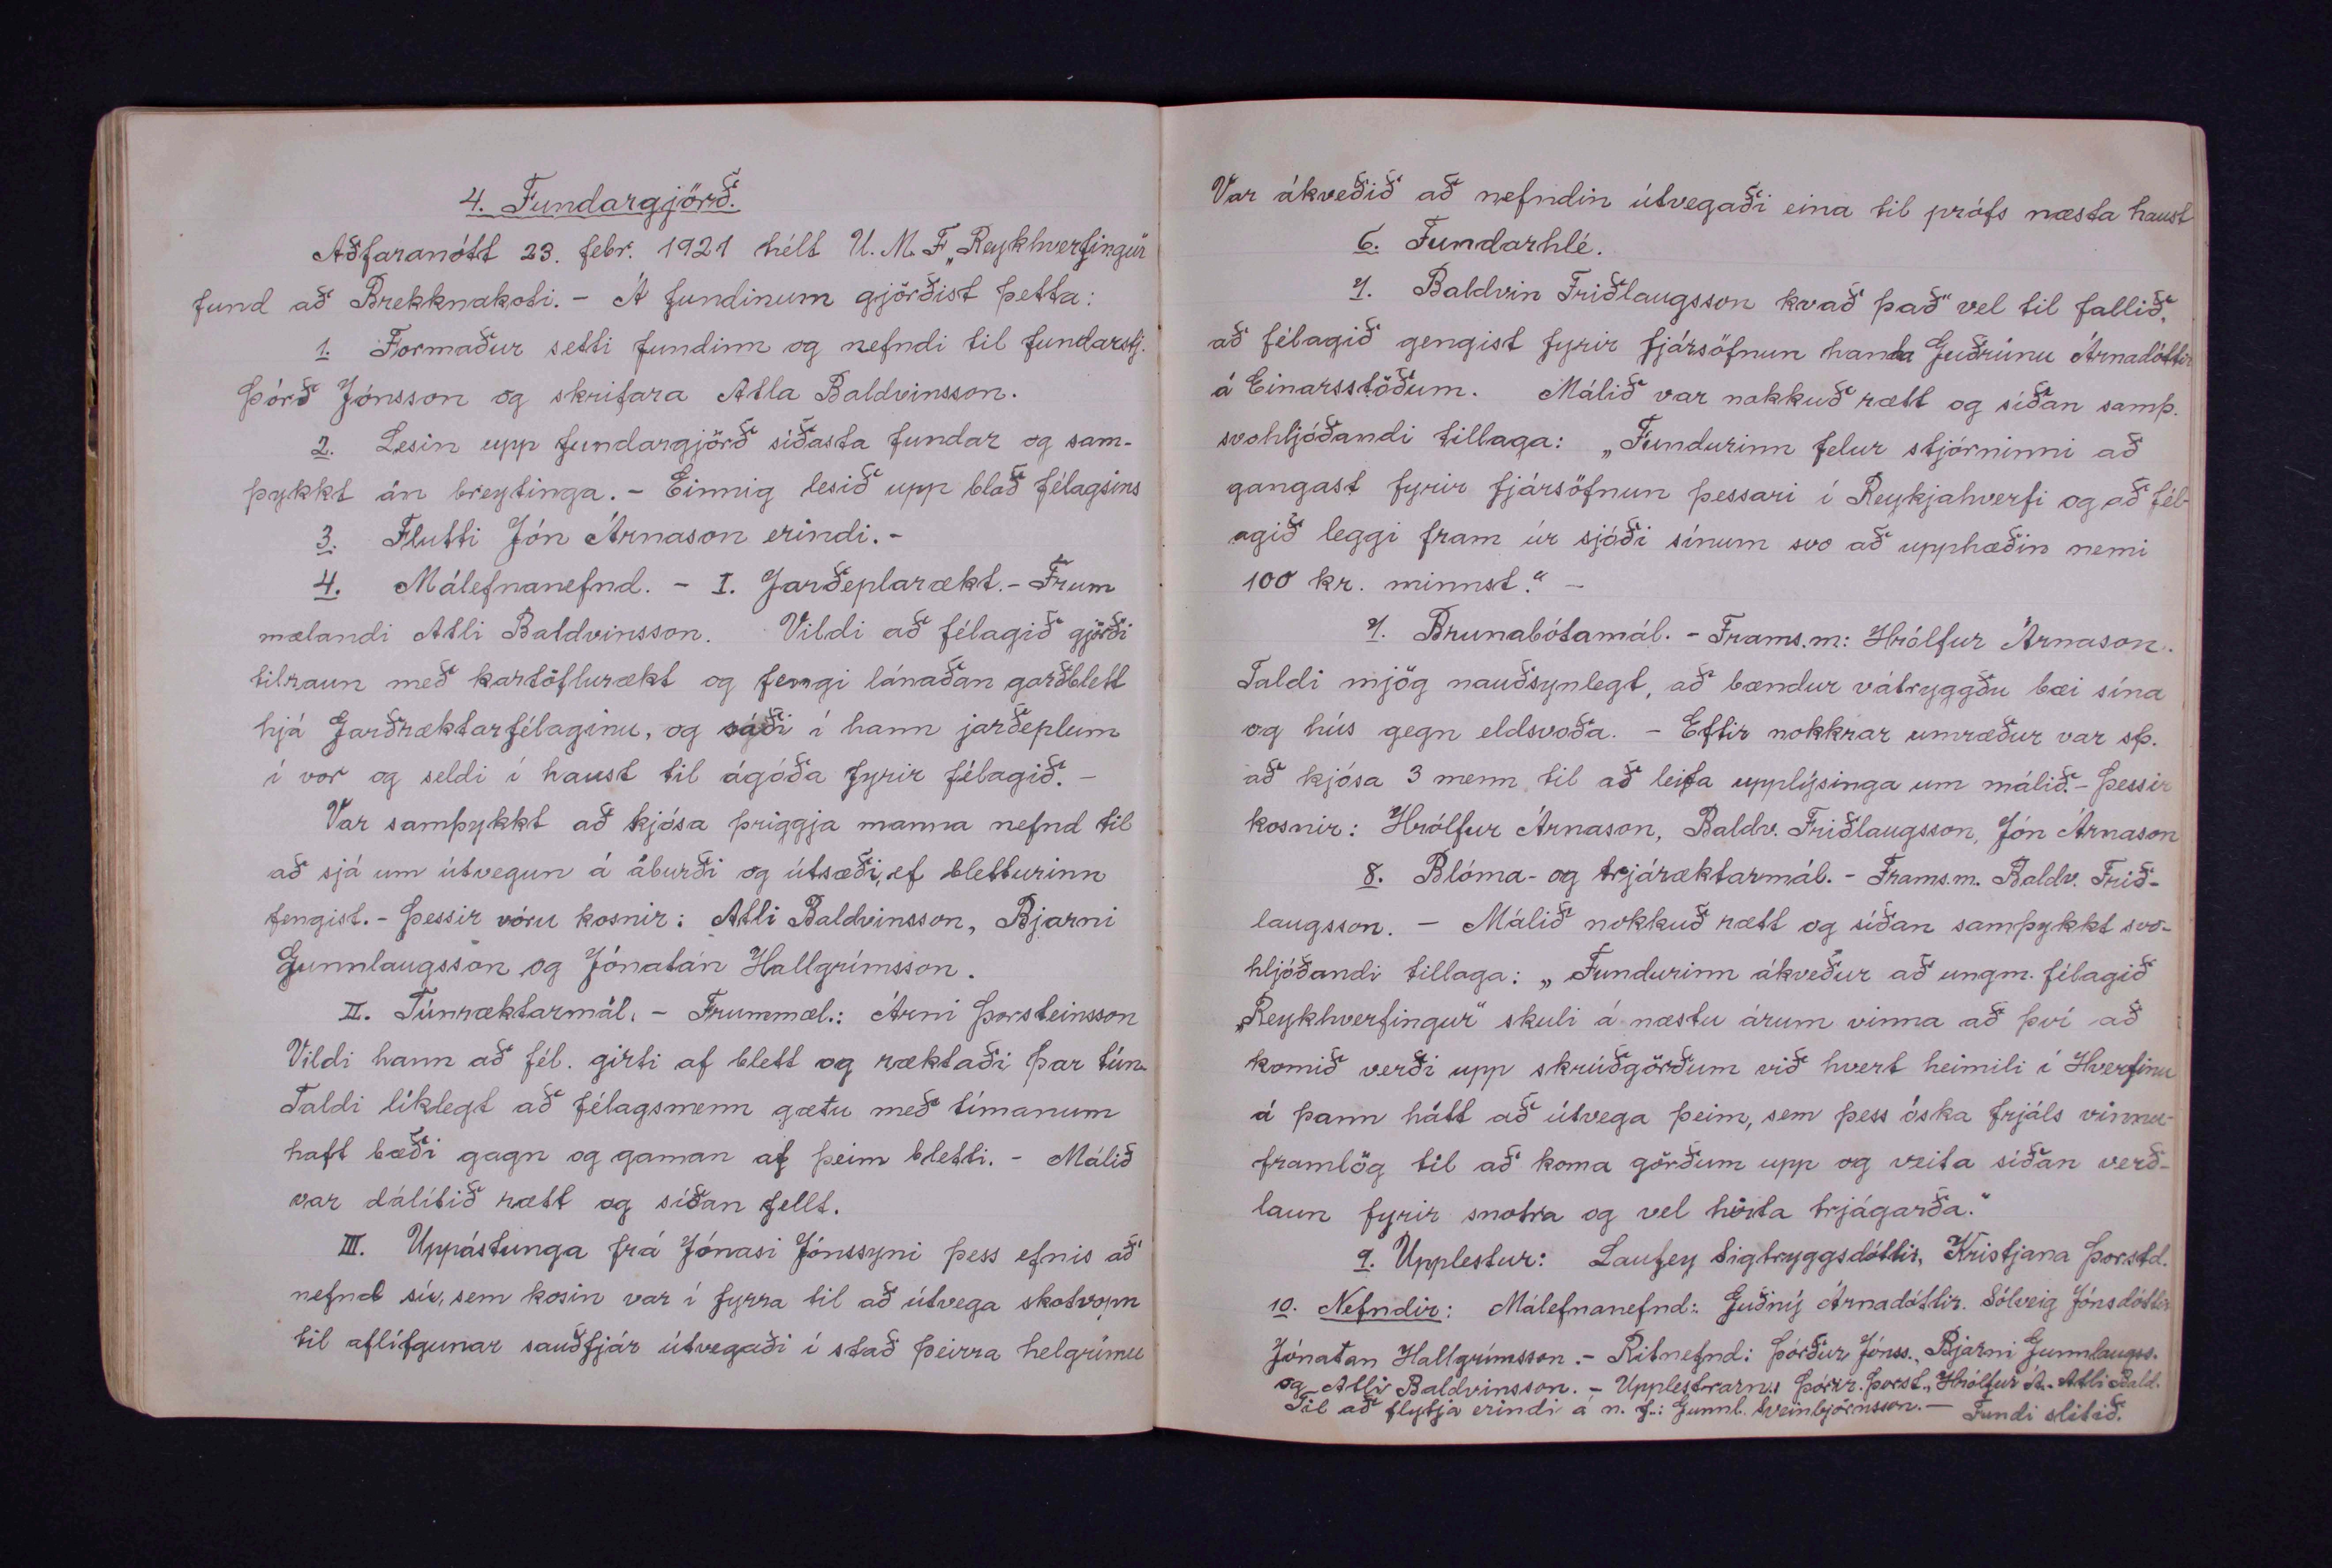 4. Fundargjörð.
Aðfaranótt 23. febr. 1921 hélt U.M.F. „Reykhverfingur
fund að Brekknakoti. - Á fundinum gjörðist þetta:
1. Formaður setti fundinn og nefndi til fundarstj.
Þórð Jónsson og skrifara Atla Baldvinsson.
2. Lesin upp fundargjörð síðasta fundar og sam-
þykkt án breytinga. - Einnig lesið upp blað félagsins
3. Flutti Jón Árnason erindi. -
4. Málefnanefnd. - I. Jarðeplarækt. - Frum
mælandi Atli Baldvinsson. Vildi að félagið gjörði
tilraun með kartöflurækt og fengi lánaðan garðblett
hjá Garðræktarfélaginu, og sáði í hann jarðeplum
í vor og seldi í haust til ágóða fyrir félagið. -
Var samþykkt að kjósa þriggja manna nefnd til
að sjá um útvegun á áburði og útsæði, ef bletturinn
fengist. - Þessir vóru kosnir: Atli Baldvinsson, Bjarni
Gunnlaugsson og Jónatan Hallgrímsson.
II. Túnræktarmál. - Frummæl.: Árni Þorsteinsson
Vildi hann að fél. girti af blett og ræktaði þar tún.
Taldi líklegt að félagsmenn gætu með tímanum
haft bæði gagn og gaman af þeim bletti. - Málið
var dálítið rætt og síðan fellt.
III. Uppástunga frá Jónasi Jónssyni þess efnis að
nefnd sú, sem kosin var í fyrra til að útvega skotvopn
til aflífgunar sauðfjár útvegaði í stað þeirra helgrímu
Var ákveðið að nefndin útvegaði eina til prófs næsta haust
6. Fundarhlé.
7. Baldvin Friðlaugsson kvað það vel til fallið,
að félagið gengist fyrir fjársöfnun handa Guðrúnu Árnadóttir
á Einarsstöðum. Málið var nokkuð rætt og síðan samþ.
svohljóðandi tillaga: „Fundurinn felur stjórninni að
gangast fyrir fjársöfnun þessari í Reykjahverfi og að fél-
agið leggi fram úr sjóði sínum svo að upphæðin nemi
100 kr. minnst." -
7. Brunabótamál. - Frams.m: Hrólfur Árnason.
Taldi mjög nauðsynlegt, að bændur vátryggðu bæi sína
og hús gegn eldsvoða. - Eftir nokkrar umræður var sþ.
að kjósa 3 menn til að leita upplýsinga um málið. - Þessir
kosnir: Hrólfur Árnason, Baldv. Friðlaugsson, Jón Árnason
8. Blóma- og trjáræktarmál. - Frams.m. Baldv. Frið-
laugsson. - Málið nokkuð rætt og síðan samþykkt svo-
hljóðandi tillaga: „Fundurinn ákveður að ungm. félagið
„Reykhverfingur" skuli á næstu árum vinna að því að
komið verði upp skrúðgörðum við hvert heimili í Hverfinu
á þann hátt að útvega þeim, sem þess óska frjáls vinnu-
framlög til að koma görðum upp og veita síðan verð-
laun fyrir snotra og vel hirta trjágarða."
9. Upplestur: Laufey Sigtryggsdóttir, Kristjana Þorstd.
10. Nefndir: Málefnanefnd: Guðný Árnadóttir. Sólveig Jónsdóttir
Jónatan Hallgrímsson. - Ritnefnd: Þórður Jónss., Bjarni Gunnlaugss.
og Atli Baldvinsson. - Upplestrarn: Þorst., Hrólfur Á. Atli Bald.
Til að flytja erindi á n. f.: Gunnl. Sveinbjörnsson. - Fundi slitið.